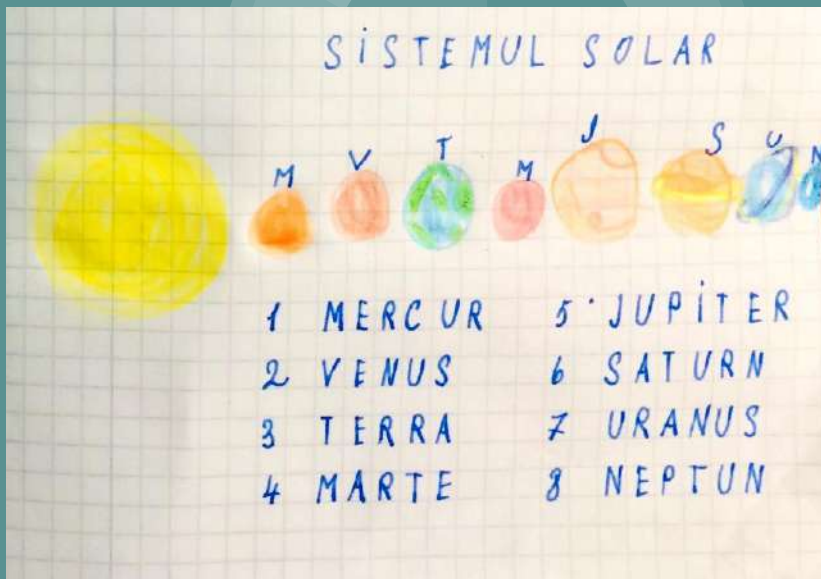 SİSTEMUL SOLAR
M V T M J S U N
1 MERCUR
2 VENUS
3 TERRA
4 MARTE
5 · JUPİTER
6 SATURN
7 URANUS
8 NEPTUN